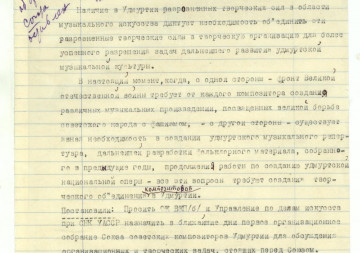 Наличие в Удмуртии разрозненных творческих сил в области
музыкального искусства диктует необходимость об'единить эти
разрозненные творческие силы в творческую организацию для более
успешного разрешения задач дальнейшего развития удмуртской
музыкальной культуры.
В настоящий момент, когда, с одной стороны - фронт Великой
отечественной войны требует от каждого композитора создания
различных музыкальных произведений, посвященных великой борьбе
советского народа с фашизмом, - с другой стороны - существует
необходимость в создании удмуртского музыкального репер-
туара, дальнейшая разработка фольклорного материала, собранно-
го в предыдущие годы, продолжение работы по созданию удмуртской
национальной оперы - все эти вопросы требуют создания твор-
композиторов
ческого об'единения Удмуртии.
Постановили: Просить ОК ВКП/б/ и Управление по делам искусств
при СНК УАССР назначить в ближайшие дни первое организационное
собрание Союза советских композиторов Удмуртии для обсуждения
организационных и творческих задач, стоящих перед Союзом.